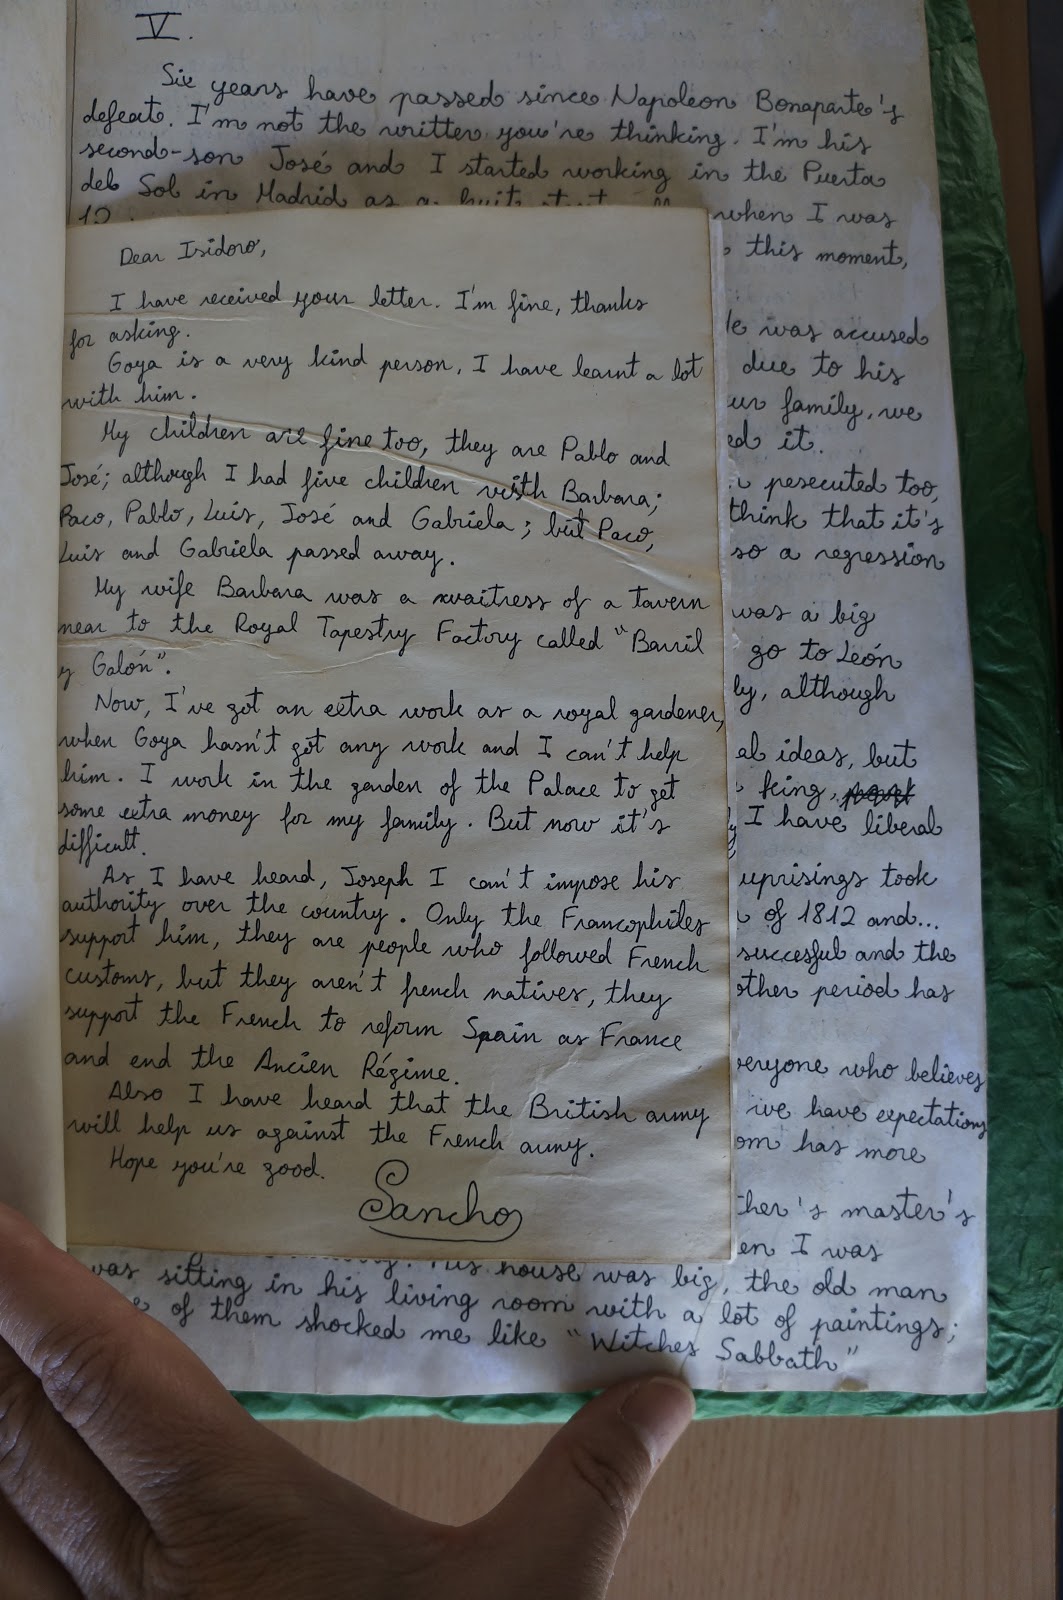 V.
Six years have passed since Napoleon Bonaparte's
defeat. I'm not the writter you're thinking. I'm his
second-son José and I started working in the Puerta
del Sol in Madrid as a
when I was
this moment,
He was accused
due to his
our family, we
it.
pesecuted too,
think that it's
so a regression
was a big
go to León
although
ideas, but
king,
I have liberal
uprisings took
of 1812 and...
succesful and the
other period has
everyone who believes
we have expectations
has more
master's
I was
Dear Isidoro,
I have received your letter. I'm fine, thanks
for asking.
Goya is a very kind person, I have learnt a lot
with him.
My children are fine too, they are Pablo and
José; although I had five children with Barbara;
Paco, Pablo, Luis, José and Gabriela; but Paco,
Luis and Gabriela passed away.
My wife Barbara was a waitress of a tavern
near to the Royal Tapestry Factory called "Barril
y Galón".
Now, I've got an extra work as a royal gardener,
when Goya hasn't got any work and I can't help
him. I work in the garden of the Palace to get
some extra money for my family. But now it's
difficult.
As I have heard, Joseph I can't impose his
authority over the country. Only the Francophiles
support him, they are people who followed French
customs, but they aren't french natives, they
support the French to reform Spain as France
and end the Ancien Régime.
Also I have heard that the British army
will help us against the French army.
Hope you're good.
Sancho
His house was big, the old man
was sitting in his living room with a lot of paintings;
of them shocked me like "Witches Sabbath"